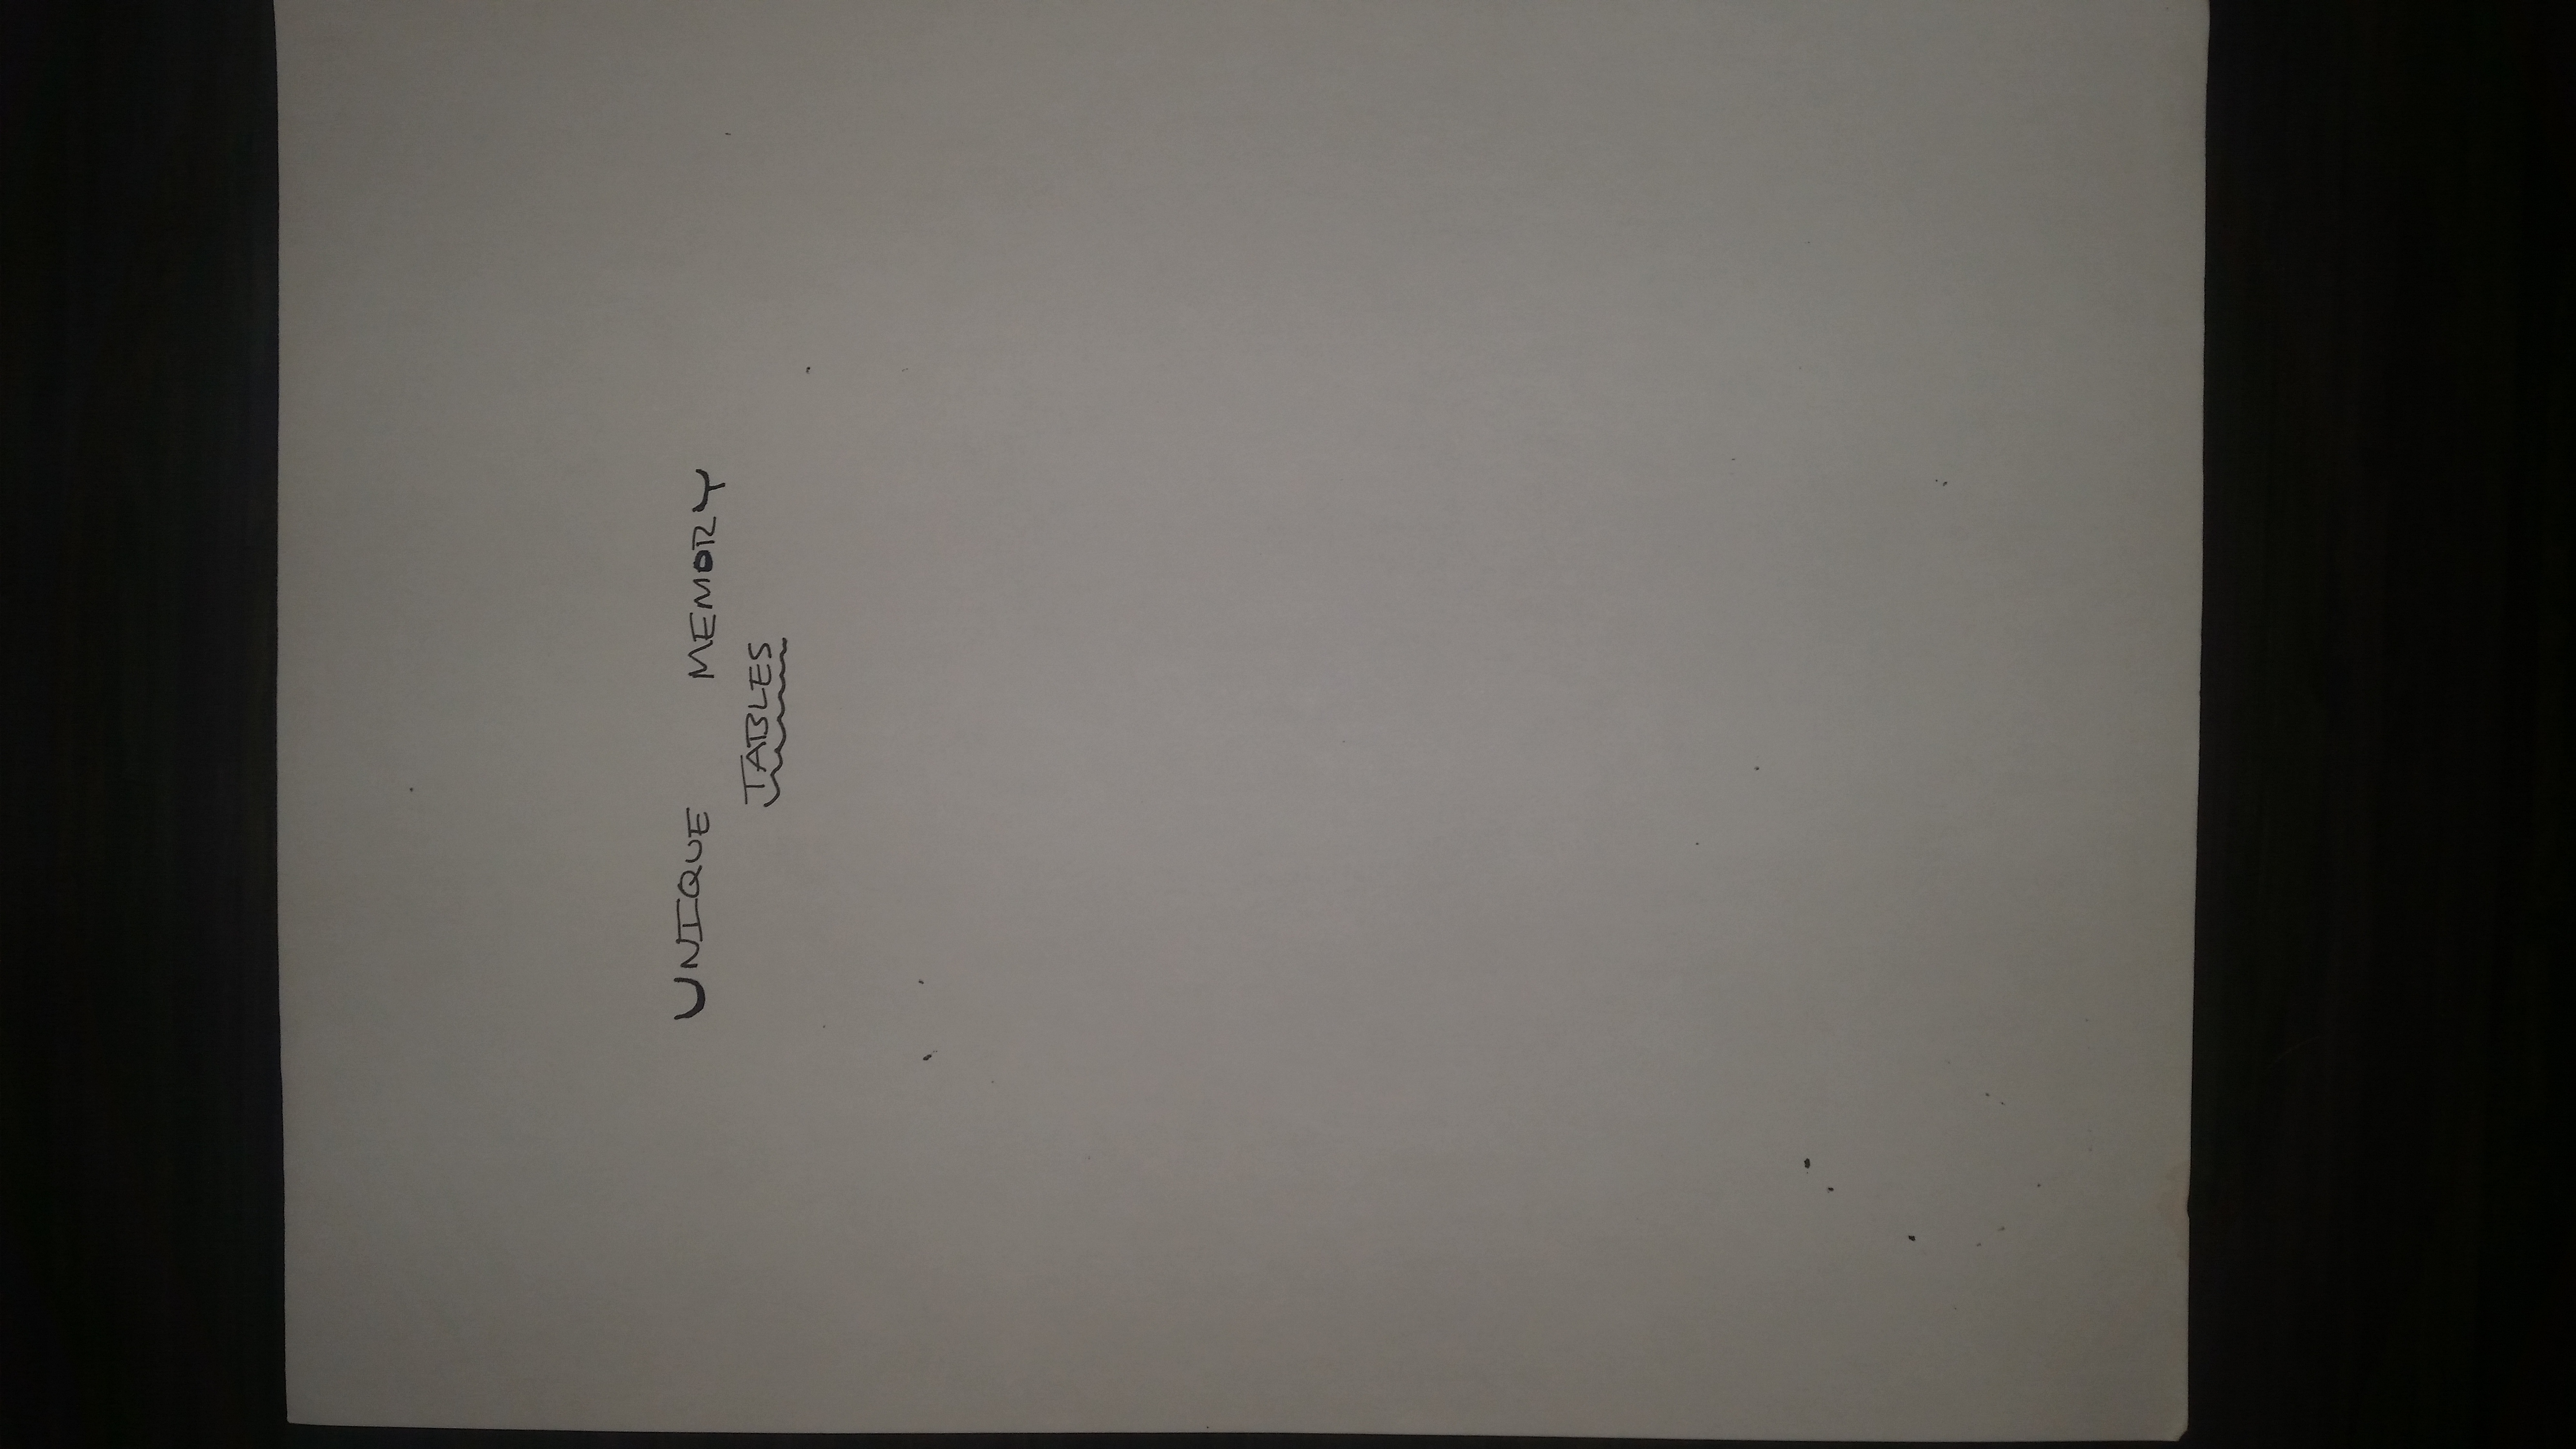 UNIQUE MEMORY
TABLES